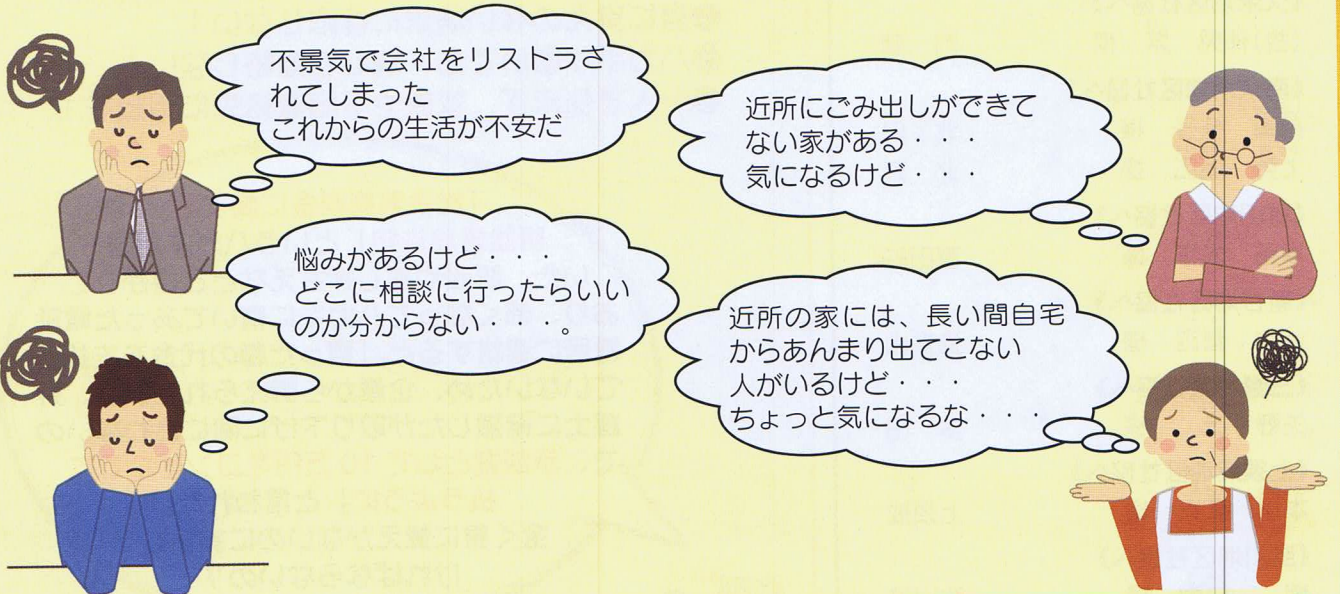 不景気で会社をリストラさ
れてしまった
これからの生活が不安だ
近所にごみ出しができて
ない家がある・・・
気になるけど・・・
悩みがあるけど・・・
どこに相談に行ったらいい
のか分からない・・・。
近所の家には、長い間自宅
からあんまり出てこない
人がいるけど・・・
ちょっと気になるな・・・